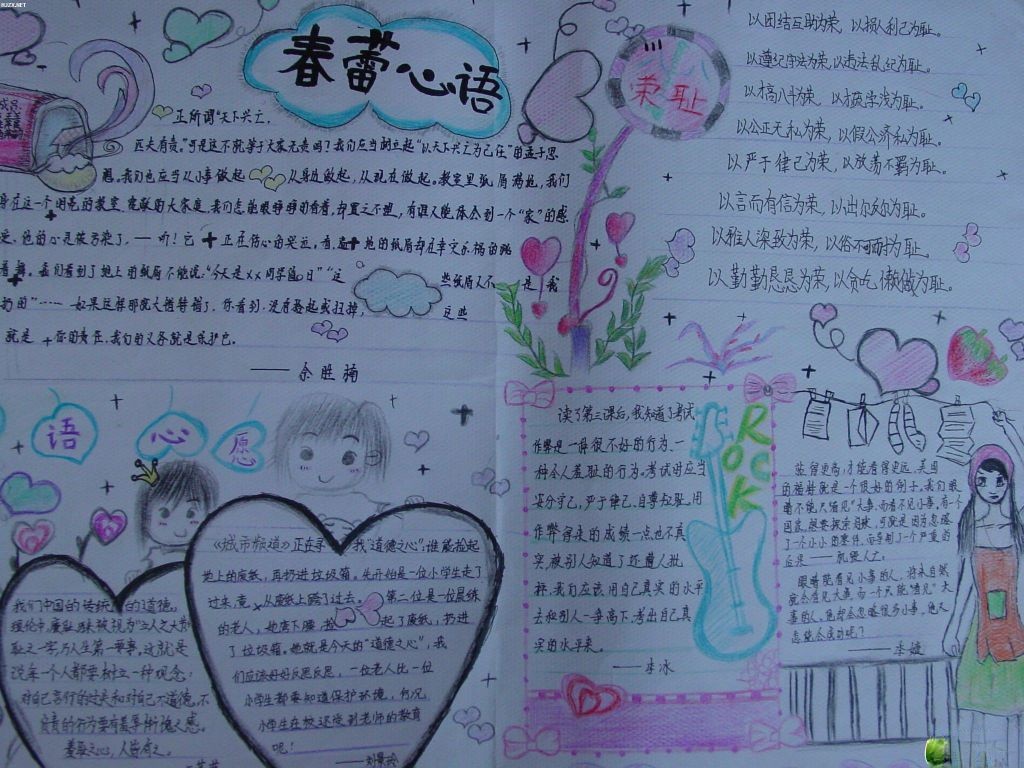 BJZX.NET
春蕾心语
正所谓“天下兴亡，
匹夫有责。”可是这不就等于大家无责吗？我们应当树立起“以天下兴亡为己任”的孟子思
想。我们也应当从小事做起 从身边做起，从现在做起。教室里纸屑满地，我们
身在这一个明亮的教室
有谁人能体会到一个“家”的感
受，他的心是被污染了，——听！它正在伤心的哭泣，
看到了地上的纸屑不能说：“今天是××同学值日”“这 些纸屑又不是我
扔的”……如果这样那就大错特错了，你看到，没有捡起或扫掉， 这些
就是 你的责任，我们的义务就是保护它。
——余胜楠
荣耻
以团结互助为荣，以损人利己为耻。
以遵纪守法为荣，以违法乱纪为耻。
以才高八斗为荣，以才疏学浅为耻。
以公正无私为荣，以假公济私为耻。
以严于律己为荣，以放荡不羁为耻。
以言而有信为荣，以出尔反尔为耻。
以雅人深致为荣，以俗不可耐为耻。
以勤勤恳恳为荣，以贪吃懒做为耻。
语心愿
我们中国的传统 的道德
理论中，廉耻 被视为“立人之大节”
耻之一字乃人生第一要事，这就是
说每一个人都要树立一种观念：
对自己言行的过失和对自己不道德，不
良的行为要有羞辱惭愧之感。
羞耻之心，人皆有之。
《城市频道》正在寻 我“道德之心”，谁能捡起
地上的废纸，再扔进垃圾箱。先开始是一位小学生走了
过来，竟 从废纸上跨了过去。 第二位是一位晨练
的老人，她弯下腰，捡 起了废纸，扔进
了垃圾箱。她就是今天的“道德之心”，我
们应该好好反思反思，一位老人比一位
小学生都要知道保护环境，何况，
小学生在校还受到老师的教育
呢！
——刘景玲
读了第三课后，我知道了考试
作弊是一种很不好的行为、一
种令人羞耻的行为，考试时应当
安分守己，严于律己，自尊知耻，用
作弊得来的成绩一点也不真
实，被别人知道了还遭人批
评，我们应该用自己真实的水平
去和别人一争高下，考出自己真
实的水平来。
——李冰
ROCK
站得更高，才能看得更远，美国
的福特就是一个很好的例子。我们眼
睛不能只看见“大事，而看不见小事，有一个
国家，想要探索星球，可就是因为忽略
了一个小小的零件，而导致了一个严重的
后果——机毁人亡。
眼睛能看见小事的人，将来自然
就会看见大事，而一个只能“看见”大
事的人，他却会忽略很多小事，他又
怎能会成功呢？
——李婕